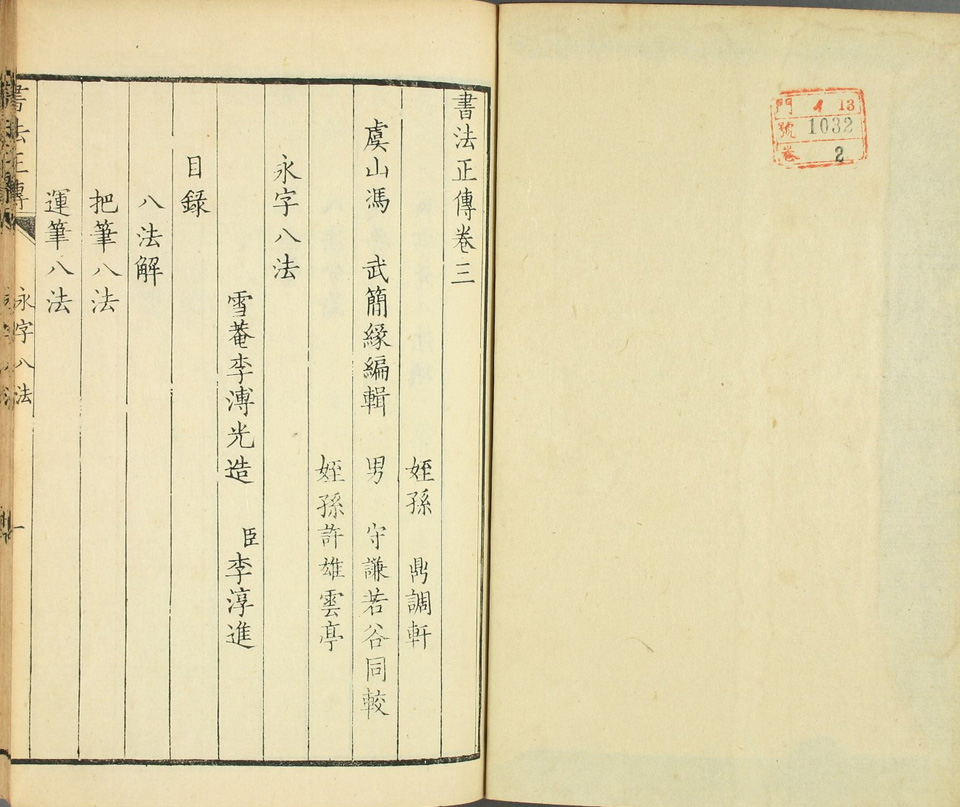 門 イ 13
號 1032
卷 2
書法正傳卷三
姪孫 鼎調軒
虞山馮 武簡緣編輯 男 守謙若谷同較
姪孫許雄雲亭
永字八法
雪菴李溥光造 臣李淳進
目錄
八法解
把筆八法
運筆八法
書法正傳 永字八法 一